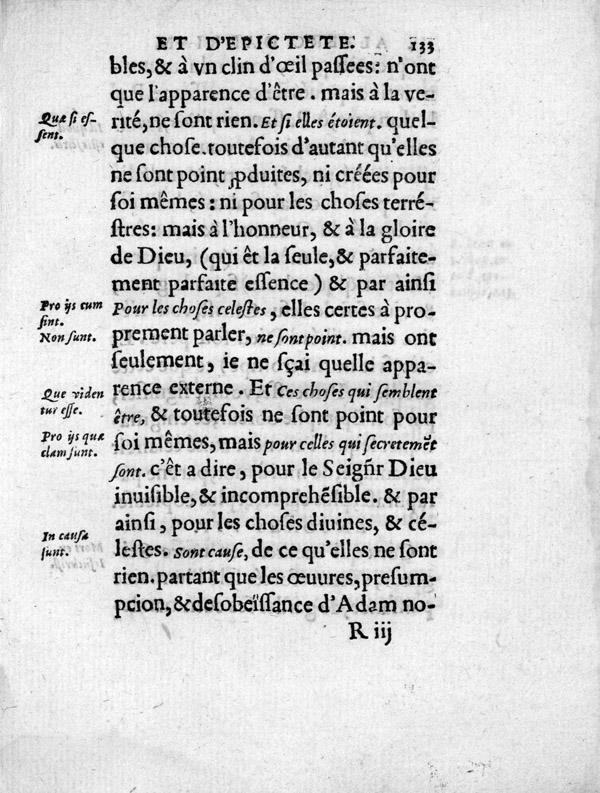 ET D'EPICTETE. 133
bles, & à vn clin d'œil paſſees: n'ont
que l'apparence d'être. mais à la ve-
Quæ ſi eſ-
ſent.
rité, ne ſont rien. Et ſi elles étoient. quel-
que choſe. toutefois d'autant qu'elles
ne ſont point ꝓduites, ni créées pour
ſoi mêmes: ni pour les choſes terré-
ſtres: mais à l'honneur, & à la gloire
de Dieu, (qui êt la ſeule, & parfaite-
ment parfaite eſſence) & par ainſi
Pro ijs cum
ſint.
Non ſunt.
Pour les choſes celeſtes, elles certes à pro-
prement parler, ne ſont point. mais ont
ſeulement, ie ne ſçai quelle appa-
Que viden
tur eſſe.
rence externe. Et Ces choſes qui ſemblent
être, & toutefois ne ſont point pour
Pro ijs quæ
clam ſunt.
ſoi mêmes, mais pour celles qui ſecretemēt
ſont. c'êt a dire, pour le Seigñr Dieu
inuiſible, & incomprehēſible. & par
ainſi, pour les choſes diuines, & cé-
In cauſa
ſunt.
leſtes. Sont cauſe, de ce qu'elles ne ſont
rien. partant que les œuures, preſum-
pcion, & deſobeïſſance d'Adam no-
R iij